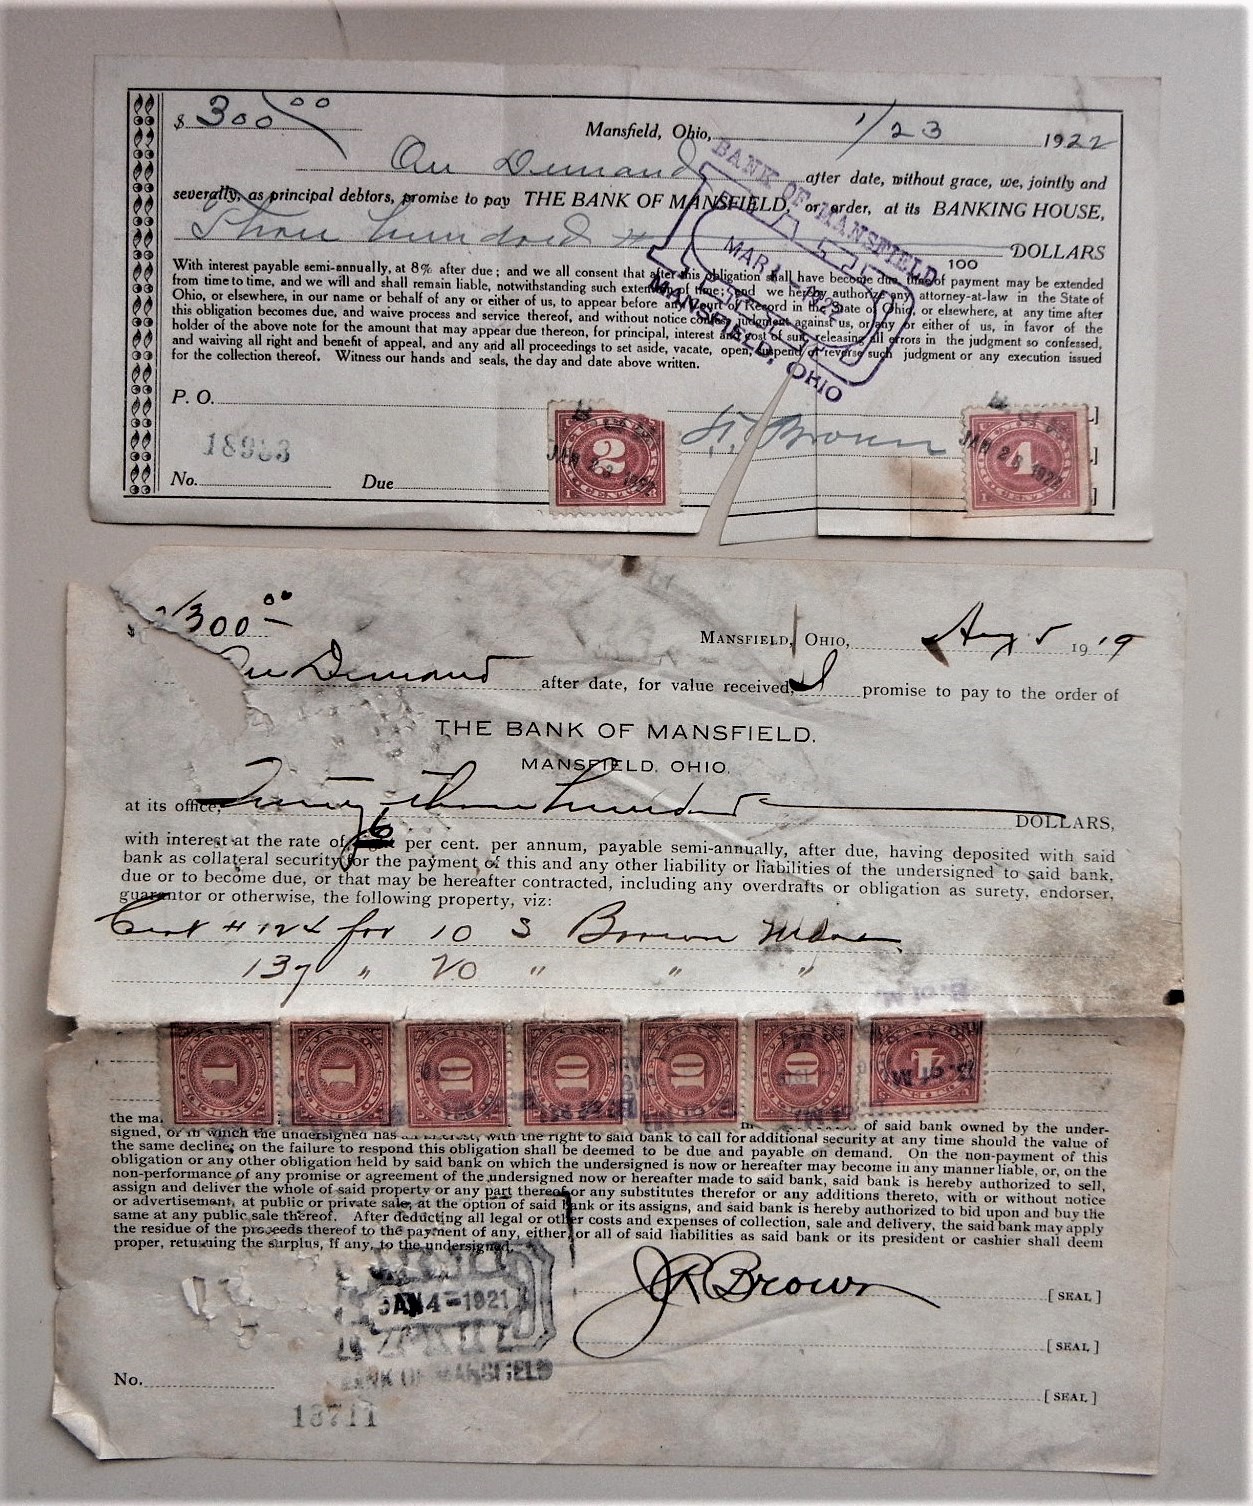 $ 300 00
Mansfield, Ohio, 1/23 1922
On Demand after date, without grace, we, jointly and
severally, as principal debtors, promise to pay THE BANK OF MANSFIELD, or order, at its BANKING HOUSE,
Three hundred DOLLARS
100
With interest payable semi-annually, at 8% after due; and we all consent that after this obligation shall have become due, time of payment may be extended
from time to time, and we will and shall remain liable, notwithstanding such extension of time; and we hereby authorize any attorney-at-law in the State of
Ohio, or elsewhere, in our name or behalf of any or either of us, to appear before any Court of Record in the State of Ohio, or elsewhere, at any time after
this obligation becomes due, and waive process and service thereof, and without notice confess judgment against us, or any or either of us, in favor of the
holder of the above note for the amount that may appear due thereon, for principal, interest and cost of suit, releasing all errors in the judgment so confessed,
and waiving all right and benefit of appeal, and any and all proceedings to set aside, vacate, open, suspend or reverse such judgment or any execution issued
for the collection thereof. Witness our hands and seals, the day and date above written.
BANK OF MANSFIELD
PAID
MAR 1 - 1923
MANSFIELD, OHIO
P. O.
Brown
2
JAN 23 1922
JAN 23 1922
No. Due
300 00
MANSFIELD, OHIO, Aug 5 1919
On Demand after date, for value received, I promise to pay to the order of
THE BANK OF MANSFIELD,
MANSFIELD, OHIO,
at its office, Twenty three hundred DOLLARS,
with interest at the rate of 6 per cent. per annum, payable semi-annually, after due, having deposited with said
bank as collateral security for the payment of this and any other liability or liabilities of the undersigned to said bank,
due or to become due, or that may be hereafter contracted, including any overdrafts or obligation as surety, endorser,
guarantor or otherwise, the following property, viz:
Cert # 124 for 10 S Brown
137 " 20 " " "
B. of M.
1 1 10 10 10 10 1
B. of M.
the ma. of said bank owned by the under-
signed, or in which the undersigned has an interest, with the right to said bank to call for additional security at any time should the value of
the same decline; on the failure to respond this obligation shall be deemed to be due and payable on demand. On the non-payment of this
obligation or any other obligation held by said bank on which the undersigned is now or hereafter may become in any manner liable, or, on the
non-performance of any promise or agreement of the undersigned now or hereafter made to said bank, said bank is hereby authorized to sell,
assign and deliver the whole of said property or any part thereof or any substitutes therefor or any additions thereto, with or without notice
or advertisement, at public or private sale, at the option of said bank or its assigns, and said bank is hereby authorized to bid upon and buy the
same at any public sale thereof. After deducting all legal or other costs and expenses of collection, sale and delivery, the said bank may apply
the residue of the proceeds thereof to the payment of any, either, or all of said liabilities as said bank or its president or cashier shall deem
proper, returning the surplus, if any, to the undersigned.
JR Brown [SEAL]
PAID
JAN 4 - 1921
BANK OF MANSFIELD
[SEAL]
No. [SEAL]
13711